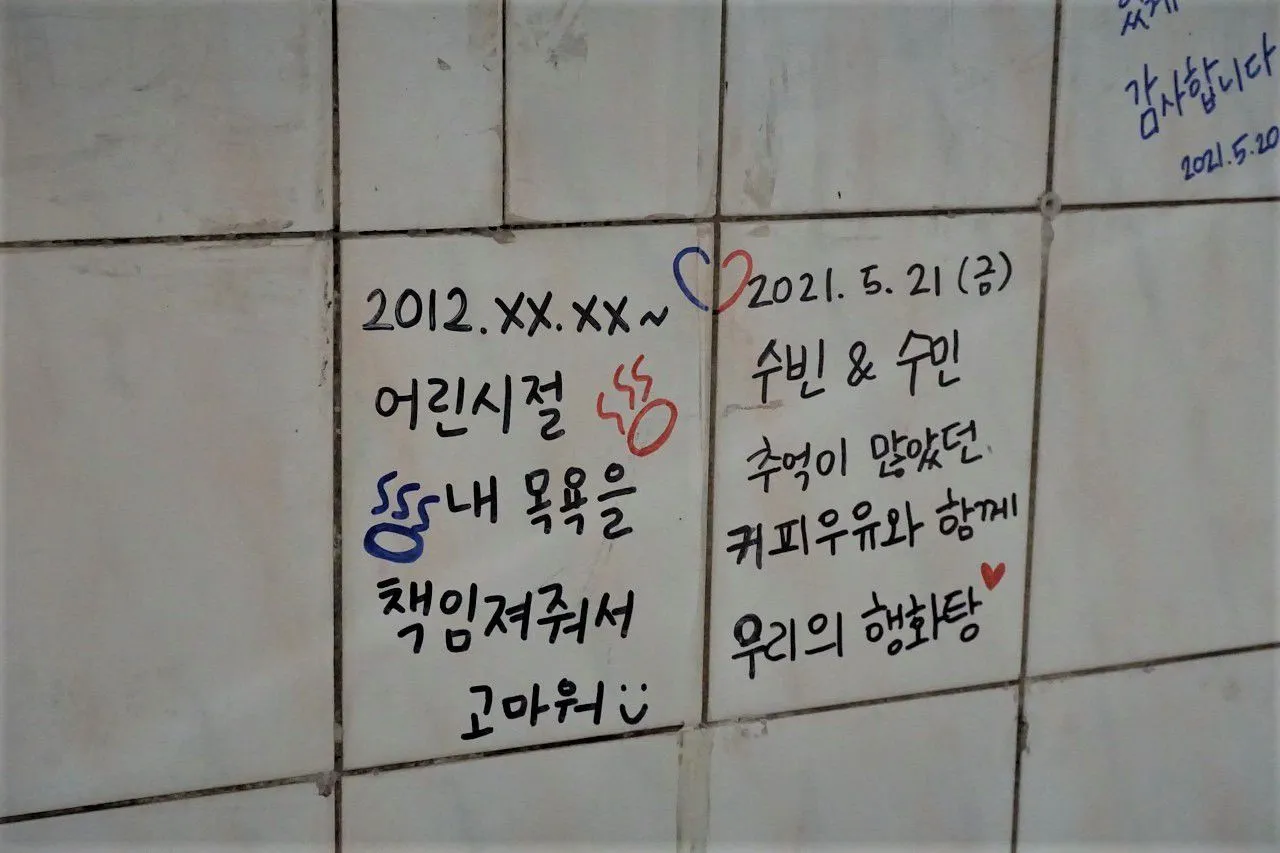 2012.XX.XX~
어린시절
내 목욕을
책임져줘서
고마워
2021. 5. 21 (금)
수빈 & 수민
추억이 많았던
커피우유와 함께
우리의 행화탕
감사합니다
2021.5.20